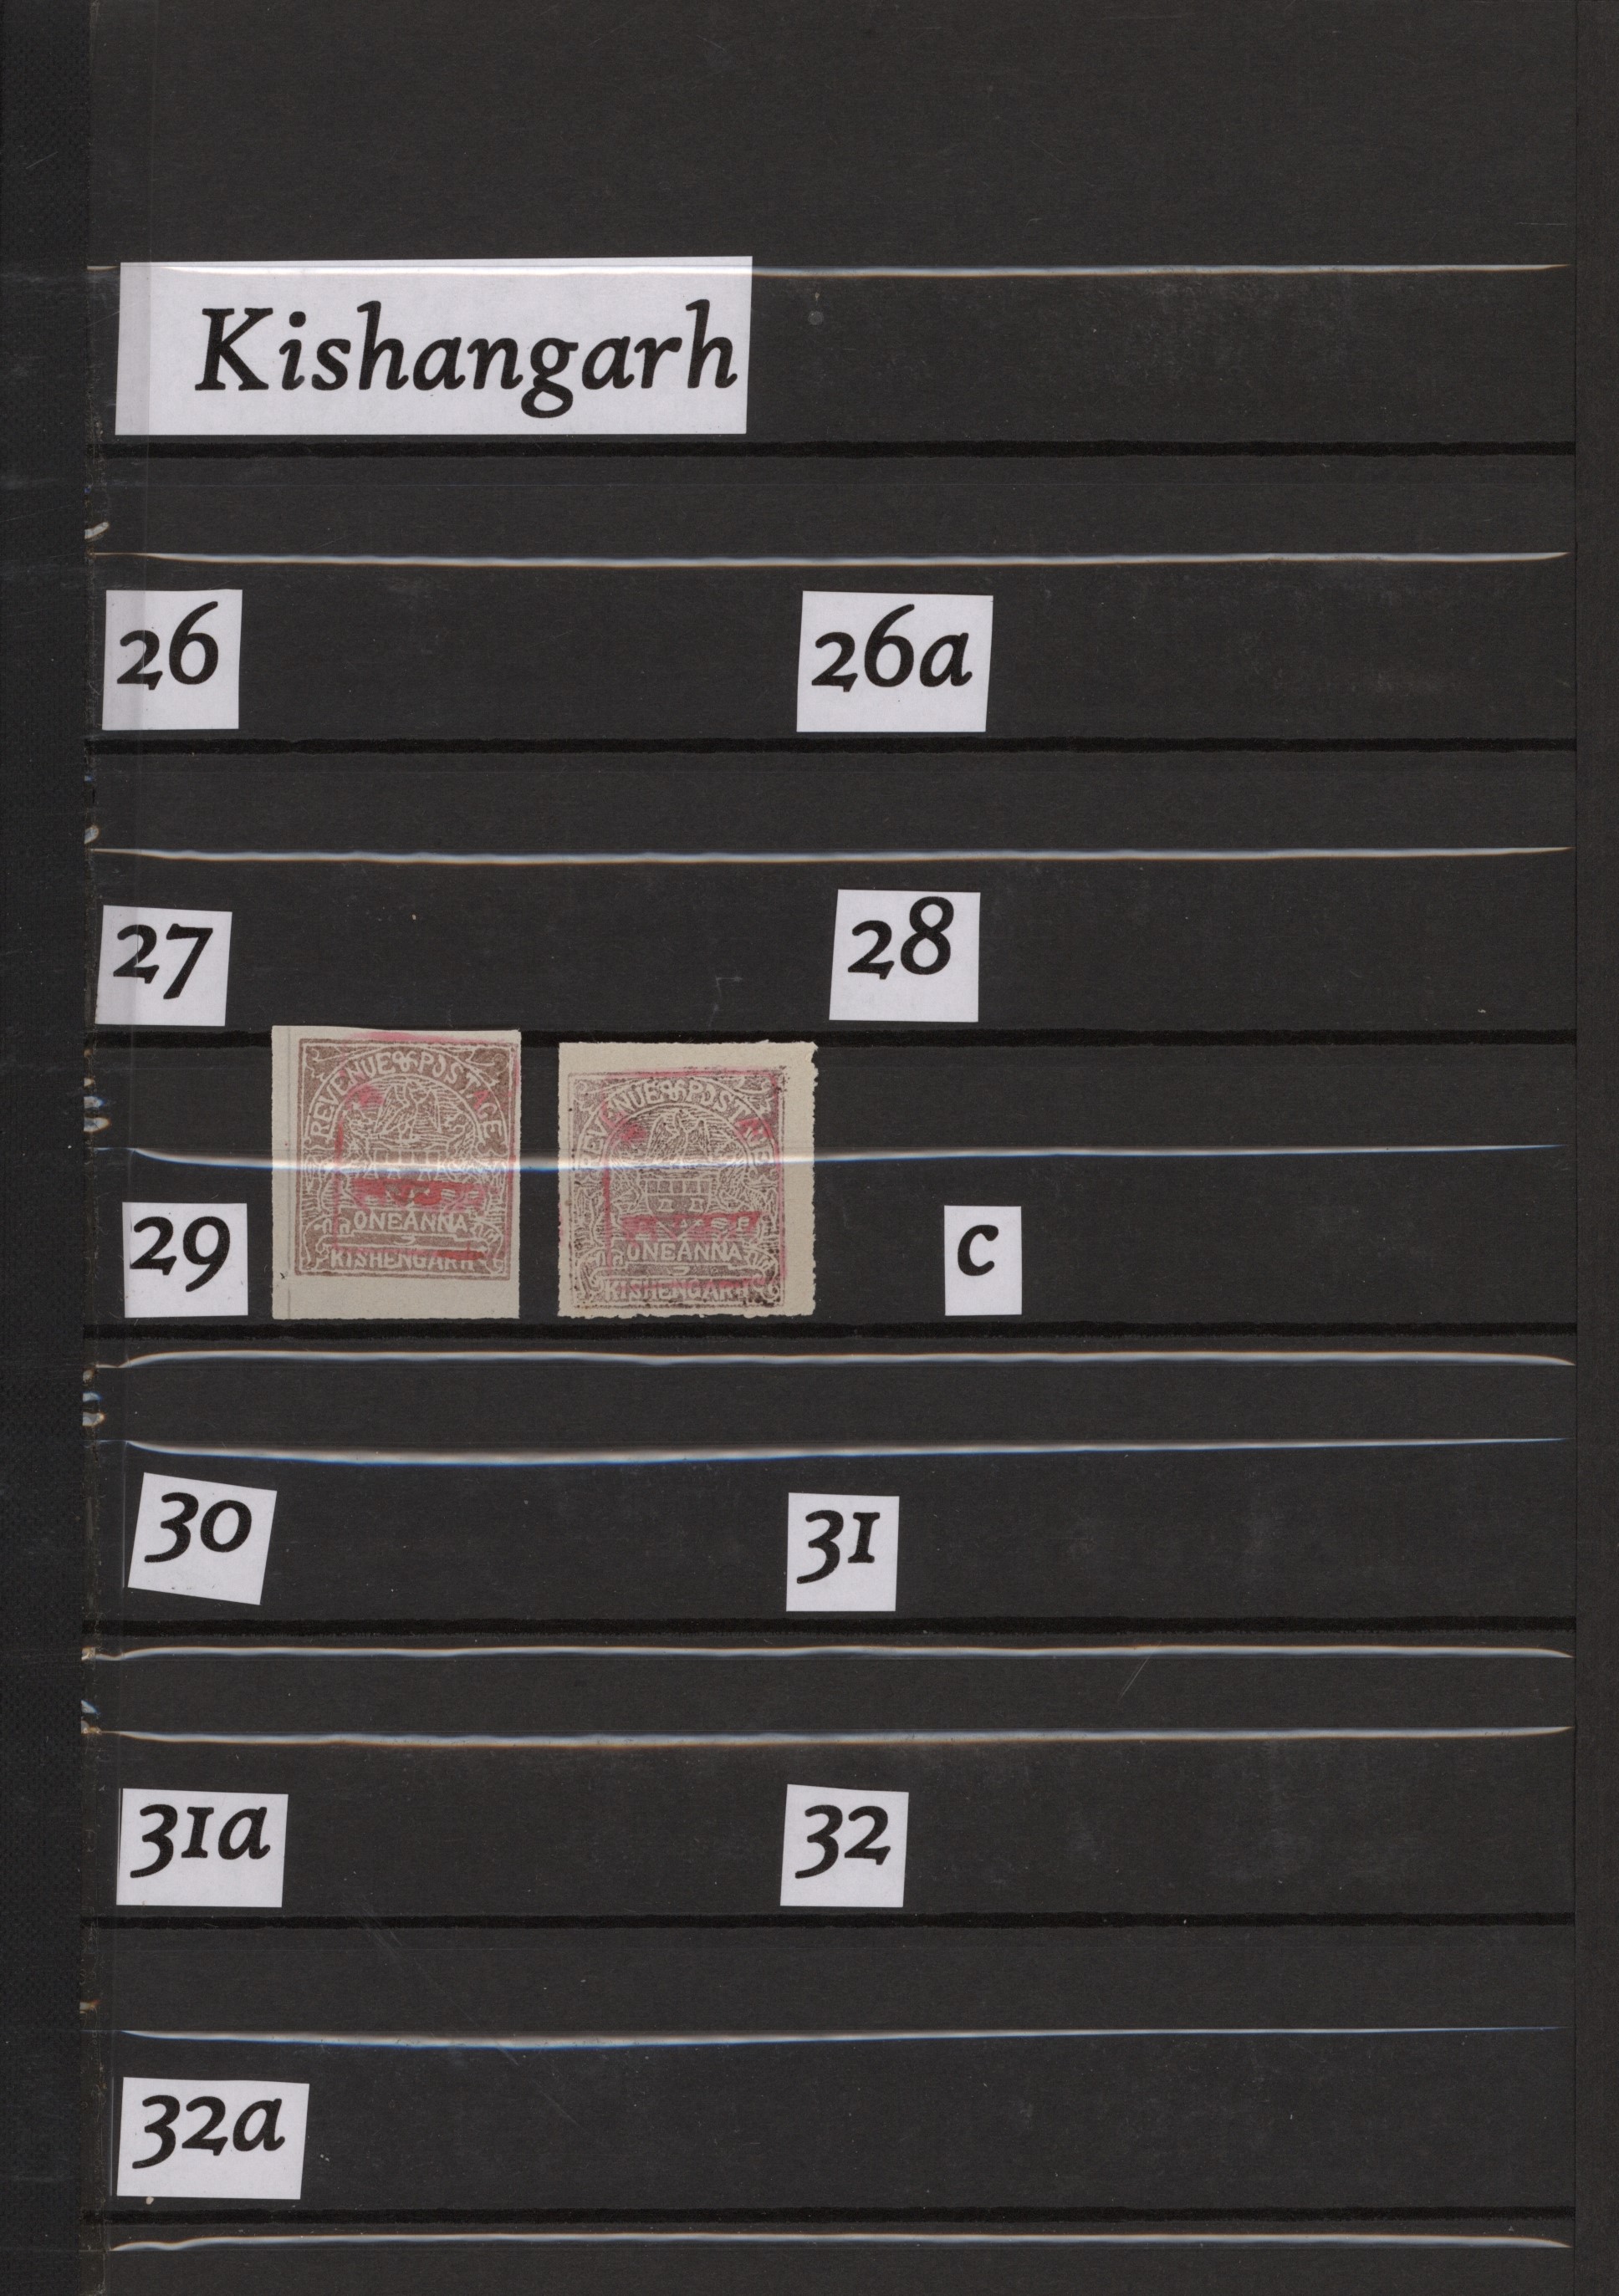 Kishangarh
26
26a
27
28
REVENUE & POSTAGE
ONE ANNA
KISHENGARH
REVENUE & POSTAGE
ONE ANNA
KISHENGARH
29
C
30
31
31a
32
32a